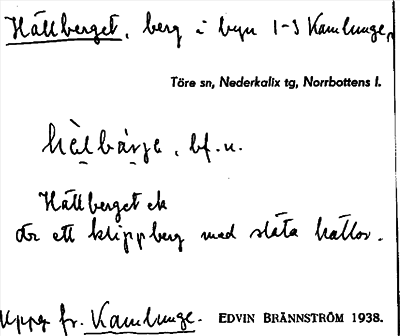 Hällberget, berg i byn 1-3 Kamlunge,
Töre sn, Nederkalix tg, Norrbottens l.
hèlbárje, bf. n.
Hällberget ek
är ett klippberg med släta hällor.
Uppg. fr. Kamlunge. EDVIN BRÄNNSTRÖM 1938.